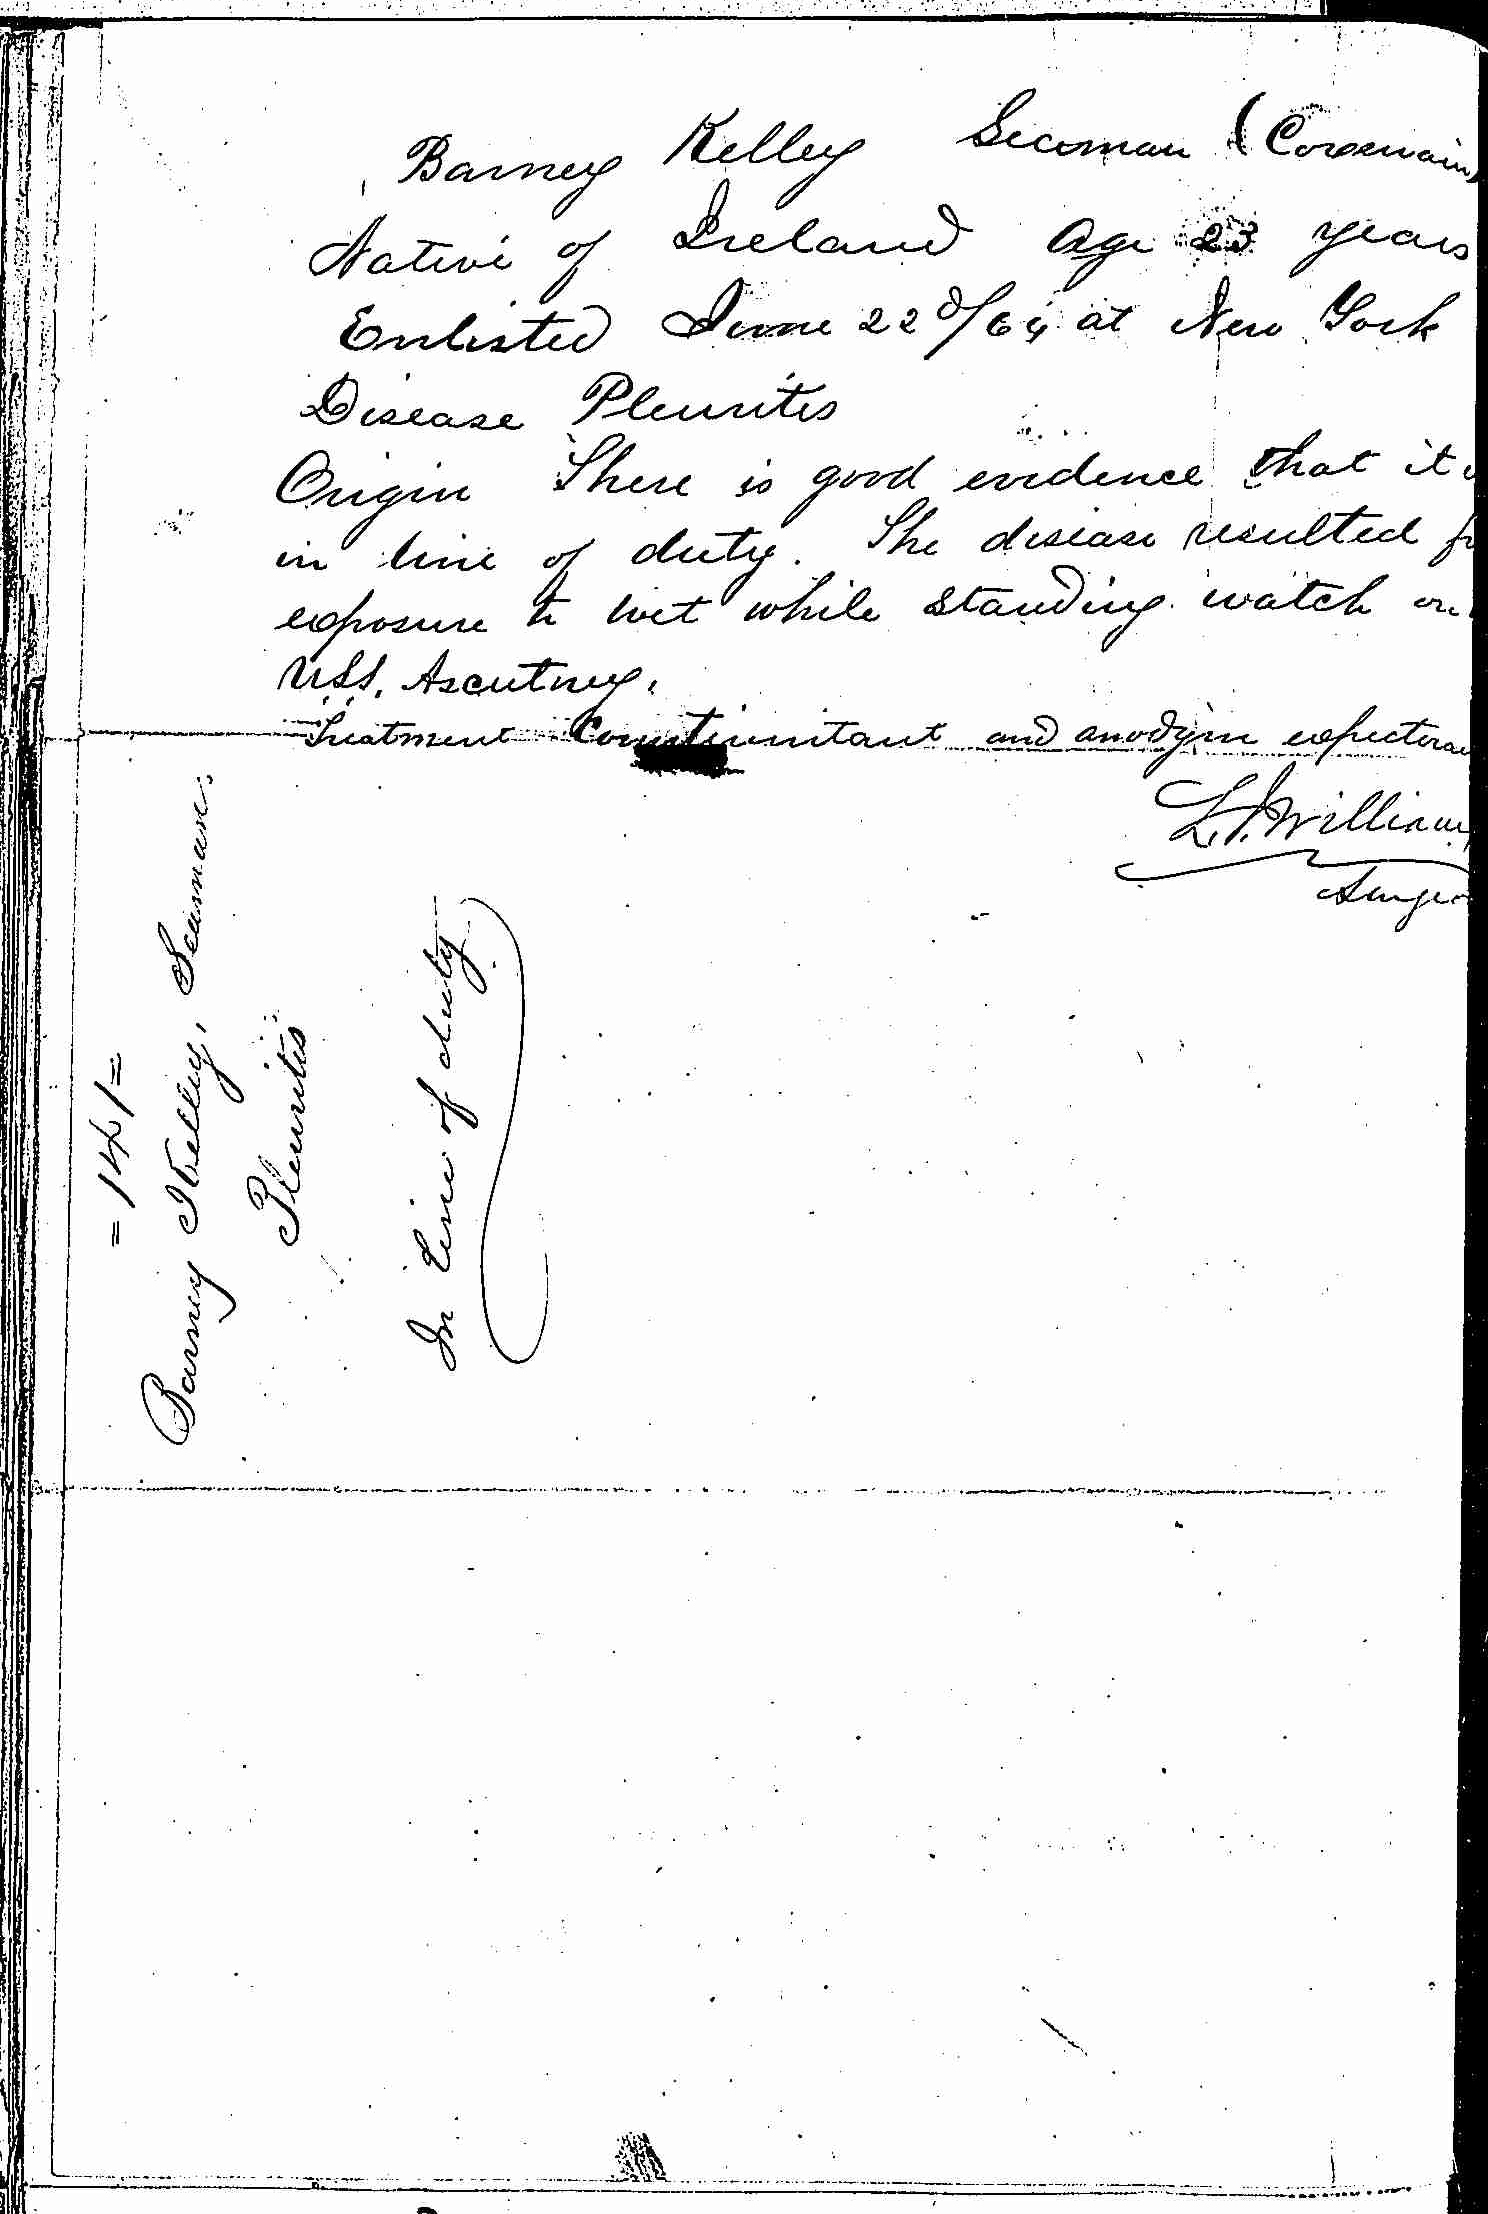 Barney Kelley Seaman (Coxswain)
Native of Ireland Age 23 years
Enlisted June 22d/64 at New York
Disease Pleuritis
Origin There is good evidence that it
in line of duty. The disease resulted
exposure to wet while standing watch on
USS. Ascutney.
Treatment and anodyne expectoran
L.J. Williams
Surgeo
= 141 =
Barney Kelley, Seaman.
Pleuritis
In Line of duty